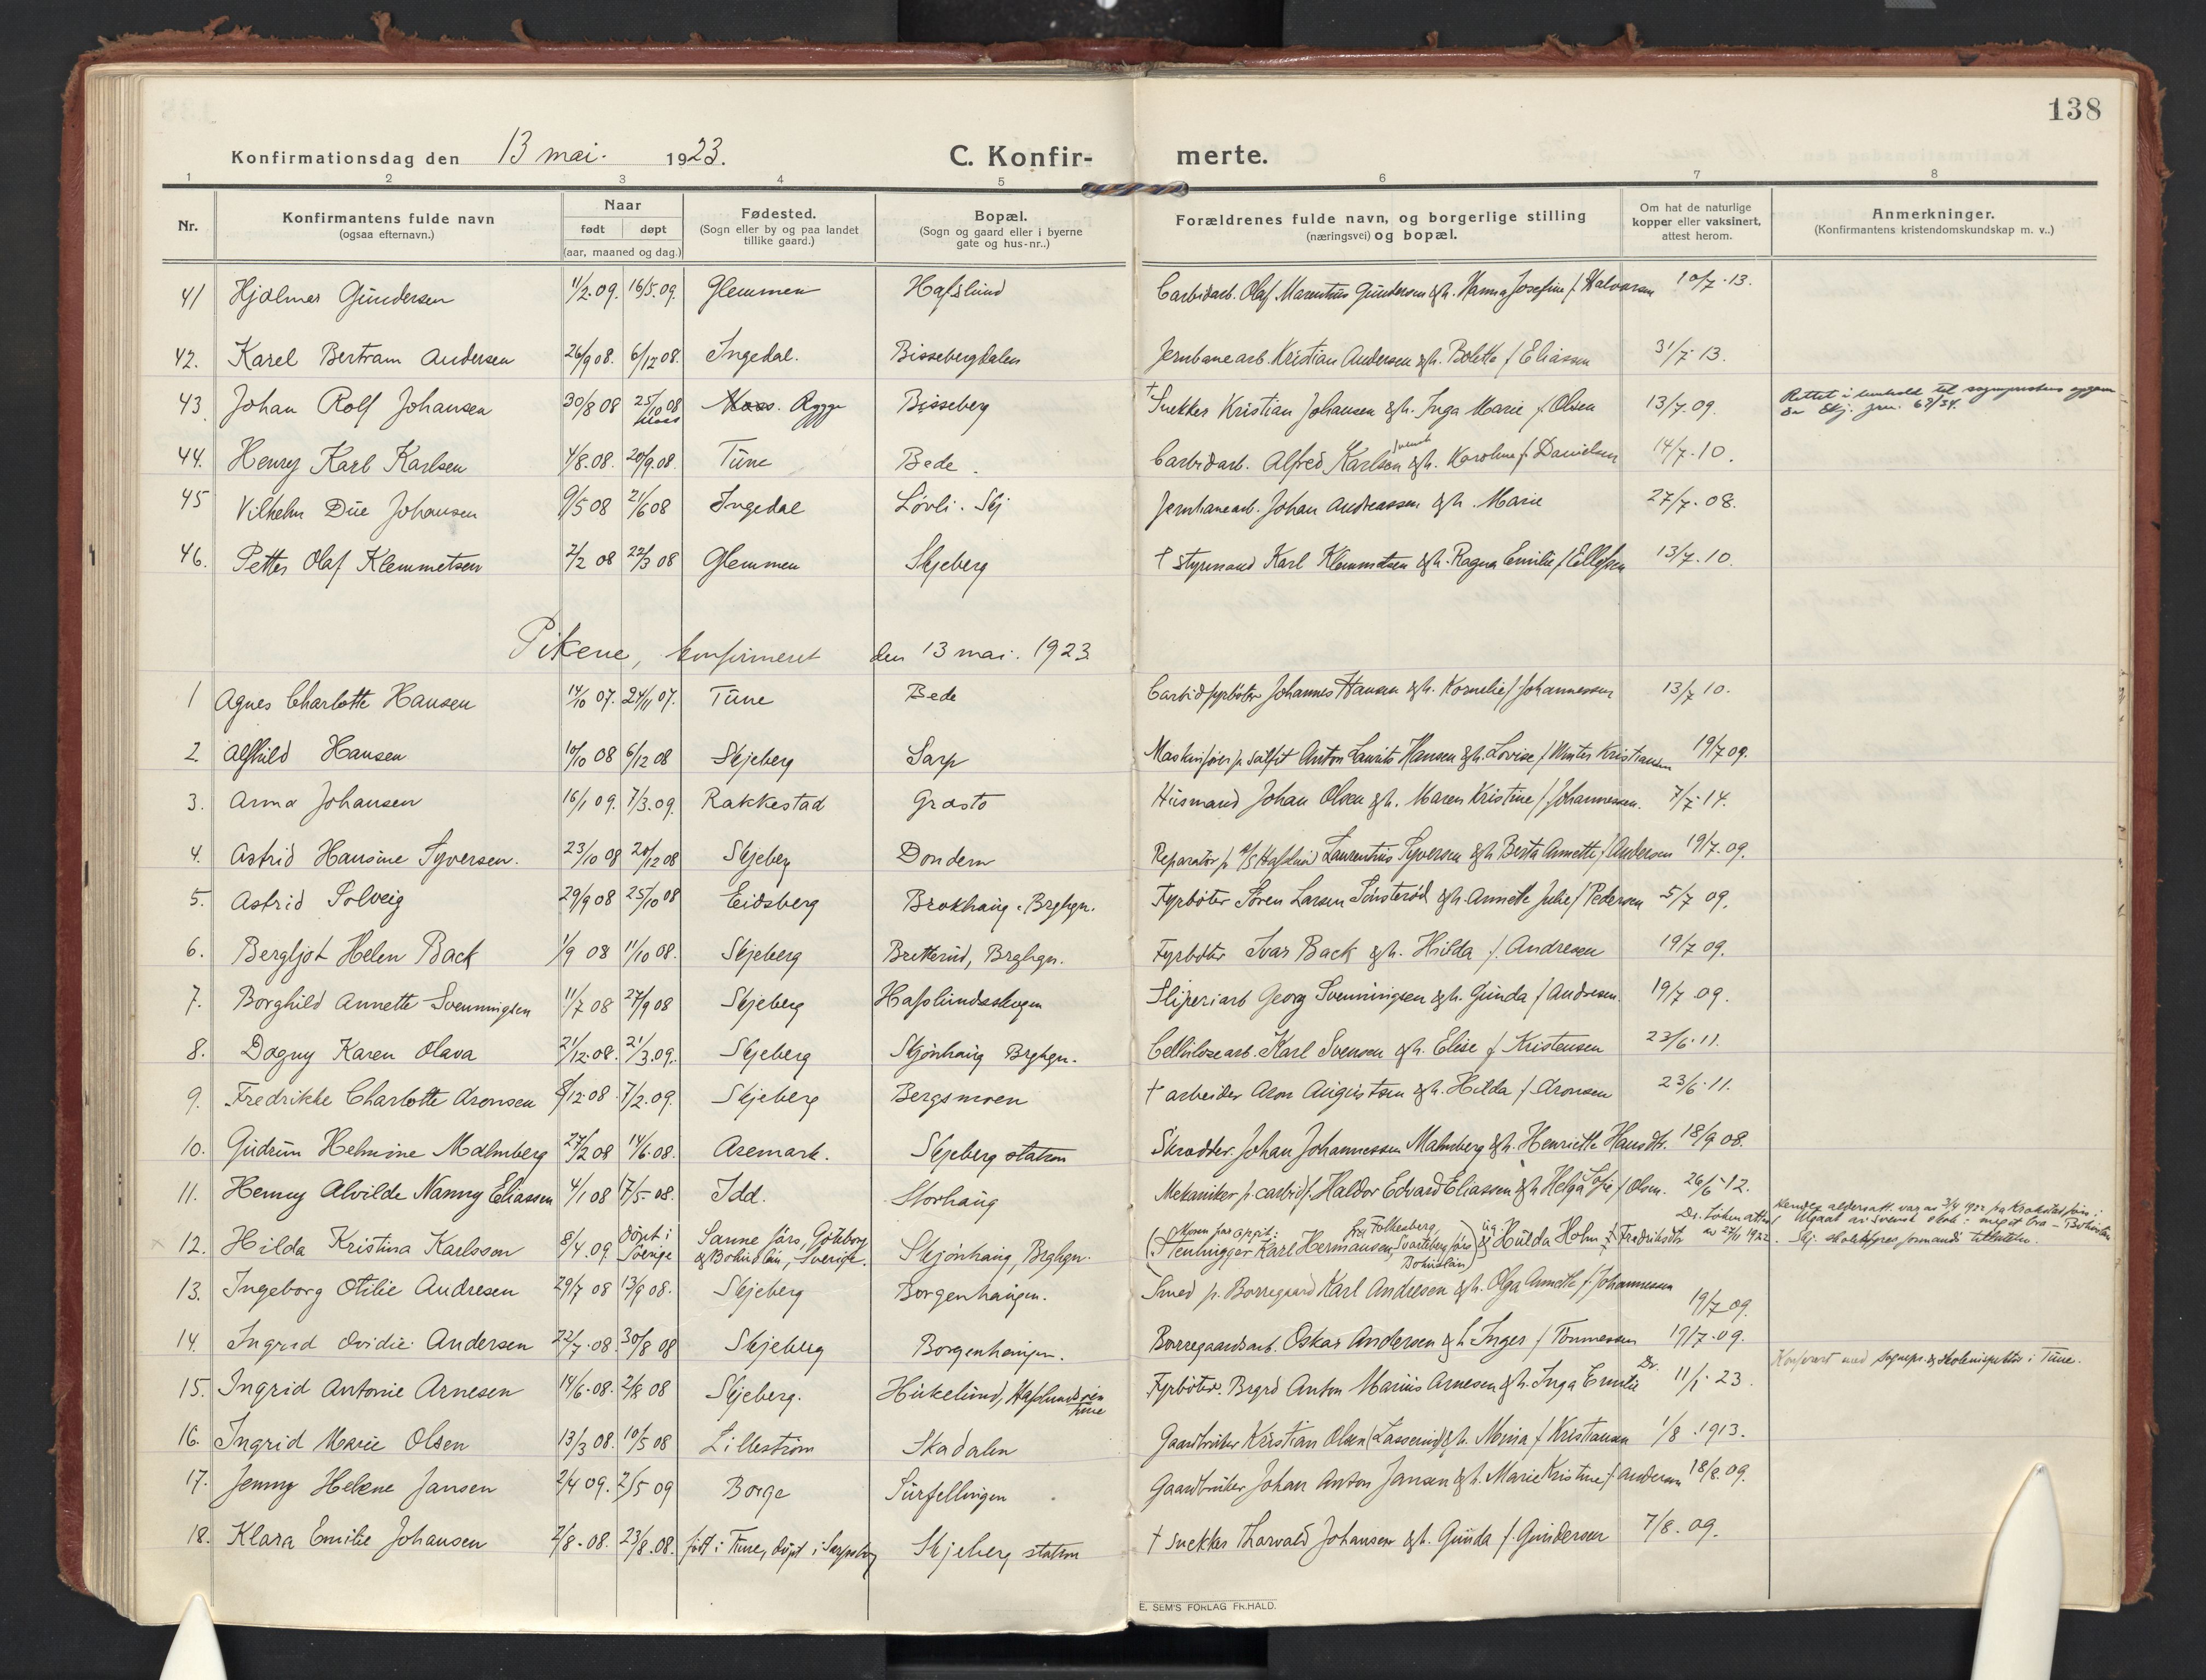 138
Konfirmationsdag den 13 mai. 1923. C. Konfirmerte.
1 2 3 4 5 6 7 8
Nr. Konfirmantens fulde navn (ogsaa efternavn.) Naar født døpt (aar, maaned og dag.) Fødested. (Sogn eller by og paa landet tillike gaard.) Bopæl. (Sogn og gaard eller i byerne gate og hus-nr..) Forældrenes fulde navn, og borgerlige stilling (næringsvei) og bopæl. Om hat de naturlige kopper eller vaksinert, attest herom. Anmerkninger. (Konfirmantens kristendomskundskap m. v..)
41 Hjalmer Gundersen 11/2.09. 16/5.09. Glemmen Hafslund Carbidarb. Olaf Marentius Gundersen & h. Hanna Josefine f. Halvorsen 10/7.13.
42. Karel Bertram Andersen 26/9 08. 6/12 08. Ingedal. Bissebergdalen Jernbanearb. Kristian Andersen & h. Bolette f Eliassen 31/7.13.
43. Johan Rolf Johansen 30/8 08 25/10 08 Moss Moss. Rygge Bisseberg † Snekker Kristian Johansen & h. Inga Marie f Olsen 13/7.09. Rettet i henhold til sogneprestens opgave Skj. jrn. 67/34.
44. Henry Karl Karlsen 4/8.08. 20/9.08. Tune Bede. Carbidarb. Alfred Karlsen svensk & h. Karoline f. Danielsen 14/7.10.
45 Vilhelm Due Johansen 9/5 08 21/6 08 Ingedal Løvli. Skj Jernbanearb. Johan Andreassen & h. Marie 27/7.08.
46. Petter Olaf Klemmetsen 2/2 08 22/3 08 Glemmen Skjeberg † styrmand Karl Klemmetsen & h. Ragna Emilie f Ellefsen 13/7.10.
Pikene, konfirmeret den 13 mai. 1923
1 Agnes Charlotte Hansen 14/10 07. 24/11 07. Tune Bede Carbidfyrbøter Johannes Hansen & h. Kornelie f Johannessen 13/7 10.
2 Alfhild Hansen 10/10 08 6/12 08 Skjeberg Sarp Maskinfører p. sulfit Anton Laurits Hansen & h. Lovise f Kristiansen 19/7 09.
3. Anna Johansen 16/1 09. 7/3.09. Rakkestad Grasto Husmand Johan Olsen & h. Maren Kristine f Johannessen. 7/7.14.
4. Astrid Hansine Syversen. 23/10 08 20/12 08 Skjeberg Dondern Reparatør p. A/S Hafslund Laurentius Syversen & h Berta Annette f Andersen 19/7.09.
5. Astrid Solveig 29/9 08 25/10 08 Eidsberg Brokhaug. Brghgn. Fyrbøter Søren Larsen Sønsterød & h. Annette Julie f Pedersen 5/7 09.
6. Bergljot Helen Back 1/9 08 11/10 08. Skjeberg Bretterud, Brghgn. Fyrbøter Ivar Back & h. Hilda f. Andresen 19/7 09.
7. Borghild Annette Svenningsen 11/7 08 27/9 08 Skjeberg Hafslundsskogen Sliperiarb Georg Svenningsen & h. Gunda f Andresen. 19/7 09.
8. Dagny Karen Olava 21/12.08. 21/3.09. Skjeberg Skjønhaug Brghgn. Cellulosearb. Karl Svensen & h. Elise f Kristensen 23/6.11.
9. Fredrikke Charlotte Aronsen 8/12.08. 7/2.09. Skjeberg Bergsmoen † arbeider Aron Augustsen & h. Hilda f. Aronsen 23/6.11.
10. Gudrun Helmine Malmberg 27/2 08 14/6.08. Aremark. Skjeberg station Skrædder. Johan Johannessen Malmberg & h. Henriette Hansdtr. 18/9 08.
11. Henny Alvilde Nanny Eliassen 4/1 08 17/5.08. Idd. Storhaug Mekaniker p. carbidf. Haldor Edvard Eliassen & h Helga Sofie f Olsen. 26/6.12.
12. Hilda Kristina Karlsson 8/4.09 døpt i Sverige Sanne färs, Göteborg & Bohuslän, Sverige. Skjønhaug, Brghgn. (Moren har opgit: Stenhugger Karl Hermansen, fra Falkenberg, Svarteborg färs Bohuslän) & ug. Hulda Holm f Fredriksdtr
13. Ingeborg Otilie Andresen 29/7 08 13/9 08. Skjeberg Borgenhaugen. Smed p. Borregaard Karl Andresen & h. Olga Annette f. Johannessen 19/7 09.
14. Ingrid Ovidie Andersen 22/7.08. 30/8 08 Skjeberg Borgenhaugen. Borregaardsarb. Oskar Andersen & h Inger f Tønnessen 19/7.09.
15. Ingrid Antonie Arnesen 14/6.08. 2/8 08 Skjeberg. Hukelund, Hafslundsøen Tune Fyrbøter. Brgrd Anton Marius Arnesen & h. Inga Emilie Dr. 11/1.23. Konferert med sognepr. & skoleinspektør i Tune.
16. Ingrid Marie Olsen 13/3 08. 10/5 08 Lillestrøm Skadalen Gaardbruker Kristian Olsen (Lasserud) & h. Mina f Kristiansen 1/8.1913.
17. Jenny Helene Jansen 2/4 09. 2/5 09 Borge Surfellingen Gaardbruker Johan Anton Jansen & h. Marie Kristine f. Andersen 18/8.09.
18. Klara Emilie Johansen 2/8.08. 23/8.08. født i Tune, døpt i Sarpsborg Skjeberg station † snekker Thorvald Johansen & h. Gunda f. Gundersen 7/8.09.
E. SEM'S FORLAG FR.HALD.